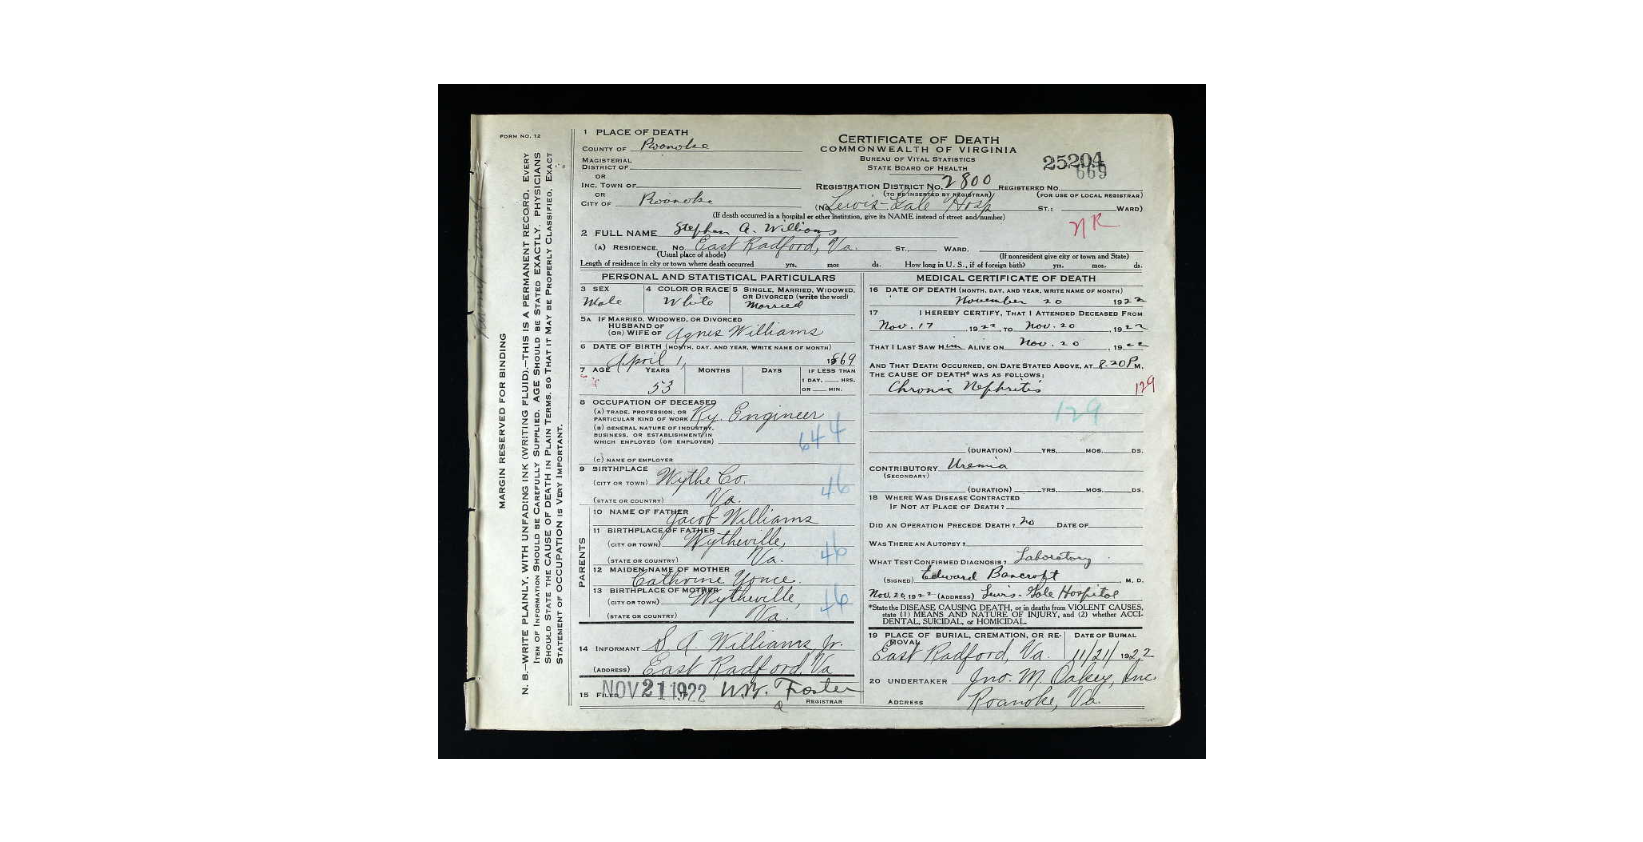 FORM NO. 12
MARGIN RESERVED FOR BINDING
N. B.—WRITE PLAINLY, WITH UNFADING INK (WRITING FLUID).—THIS IS A PERMANENT RECORD. EVERY
ITEM OF INFORMATION SHOULD BE CAREFULLY SUPPLIED. AGE SHOULD BE STATED EXACTLY. PHYSICIANS
SHOULD STATE THE CAUSE OF DEATH IN PLAIN TERMS, SO THAT IT MAY BE PROPERLY CLASSIFIED. EXACT
STATEMENT OF OCCUPATION IS VERY IMPORTANT.
1 PLACE OF DEATH
COUNTY OF Roanoke
MAGISTERIAL
DISTRICT OF
OR
INC. TOWN OF
OR
CITY OF Roanoke
CERTIFICATE OF DEATH
COMMONWEALTH OF VIRGINIA
BUREAU OF VITAL STATISTICS
STATE BOARD OF HEALTH
25204
669
REGISTRATION DISTRICT NO. 2800 REGISTERED NO.
(TO BE INSERTED BY REGISTRAR) (FOR USE OF LOCAL REGISTRAR)
(No. Lewis-Gale Hosp ST.; WARD)
(If death occurred in a hospital or other institution, give its NAME instead of street and number)
NR
2 FULL NAME Stephen A. Williams
(A) RESIDENCE. No. East Radford, Va. ST. WARD.
(Usual place of abode) (If nonresident give city or town and State)
Length of residence in city or town where death occurred yrs. mos. ds. How long in U. S., if of foreign birth? yrs. mos. ds.
PERSONAL AND STATISTICAL PARTICULARS
3 SEX 4 COLOR OR RACE 5 SINGLE, MARRIED, WIDOWED,
OR DIVORCED (write the word)
Male White Married
5A IF MARRIED, WIDOWED, OR DIVORCED
HUSBAND OF
(OR) WIFE OF Agnes Williams
6 DATE OF BIRTH (MONTH, DAY, AND YEAR, WRITE NAME OF MONTH)
April 1, 1869
7 AGE YEARS MONTHS DAYS IF LESS THAN
1 DAY, HRS.
OR MIN.
53
8 OCCUPATION OF DECEASED
(A) TRADE, PROFESSION, OR
PARTICULAR KIND OF WORK Ry. Engineer
(B) GENERAL NATURE OF INDUSTRY,
BUSINESS, OR ESTABLISHMENT IN
WHICH EMPLOYED (OR EMPLOYER)
644
(C) NAME OF EMPLOYER
9 BIRTHPLACE
(CITY OR TOWN) Wythe Co.
(STATE OR COUNTRY) Va.
46
PARENTS
10 NAME OF FATHER Jacob Williams
11 BIRTHPLACE OF FATHER
(CITY OR TOWN) Wytheville,
(STATE OR COUNTRY) Va.
46
12 MAIDEN NAME OF MOTHER
Cathrine Yonce.
13 BIRTHPLACE OF MOTHER
(CITY OR TOWN) Wytheville,
(STATE OR COUNTRY) Va.
46
14 INFORMANT S A Williams Jr.
(ADDRESS) East Radford, Va
15 FILED NOV 21 1922 W.B. Foster
REGISTRAR
MEDICAL CERTIFICATE OF DEATH
16 DATE OF DEATH (MONTH, DAY, AND YEAR, WRITE NAME OF MONTH)
November 20 1922
17 I HEREBY CERTIFY, THAT I ATTENDED DECEASED FROM
Nov. 17, 1922, TO Nov. 20, 1922
THAT I LAST SAW Him ALIVE ON Nov. 20, 1922
AND THAT DEATH OCCURRED, ON DATE STATED ABOVE, AT 8.20 P M.
THE CAUSE OF DEATH* WAS AS FOLLOWS:
Chronic Nephritis 129
129
(DURATION) YRS. MOS. DS.
CONTRIBUTORY Uremia
(SECONDARY)
(DURATION) YRS. MOS. DS.
18 WHERE WAS DISEASE CONTRACTED
IF NOT AT PLACE OF DEATH?
DID AN OPERATION PRECEDE DEATH? No DATE OF
WAS THERE AN AUTOPSY?
WHAT TEST CONFIRMED DIAGNOSIS? Laboratory
(SIGNED) Edward Bancroft M. D.
Nov. 20, 1922 (ADDRESS) Lewis-Gale Hospital
*State the DISEASE CAUSING DEATH, or in deaths from VIOLENT CAUSES,
state (1) MEANS AND NATURE OF INJURY, and (2) whether ACCI-
DENTAL, SUICIDAL, or HOMICIDAL.
19 PLACE OF BURIAL, CREMATION, OR RE- DATE OF BURIAL
MOVAL
East Radford, Va. 11/21/1922
20 UNDERTAKER Jno. M. Oakey, Inc.
ADDRESS Roanoke, Va.